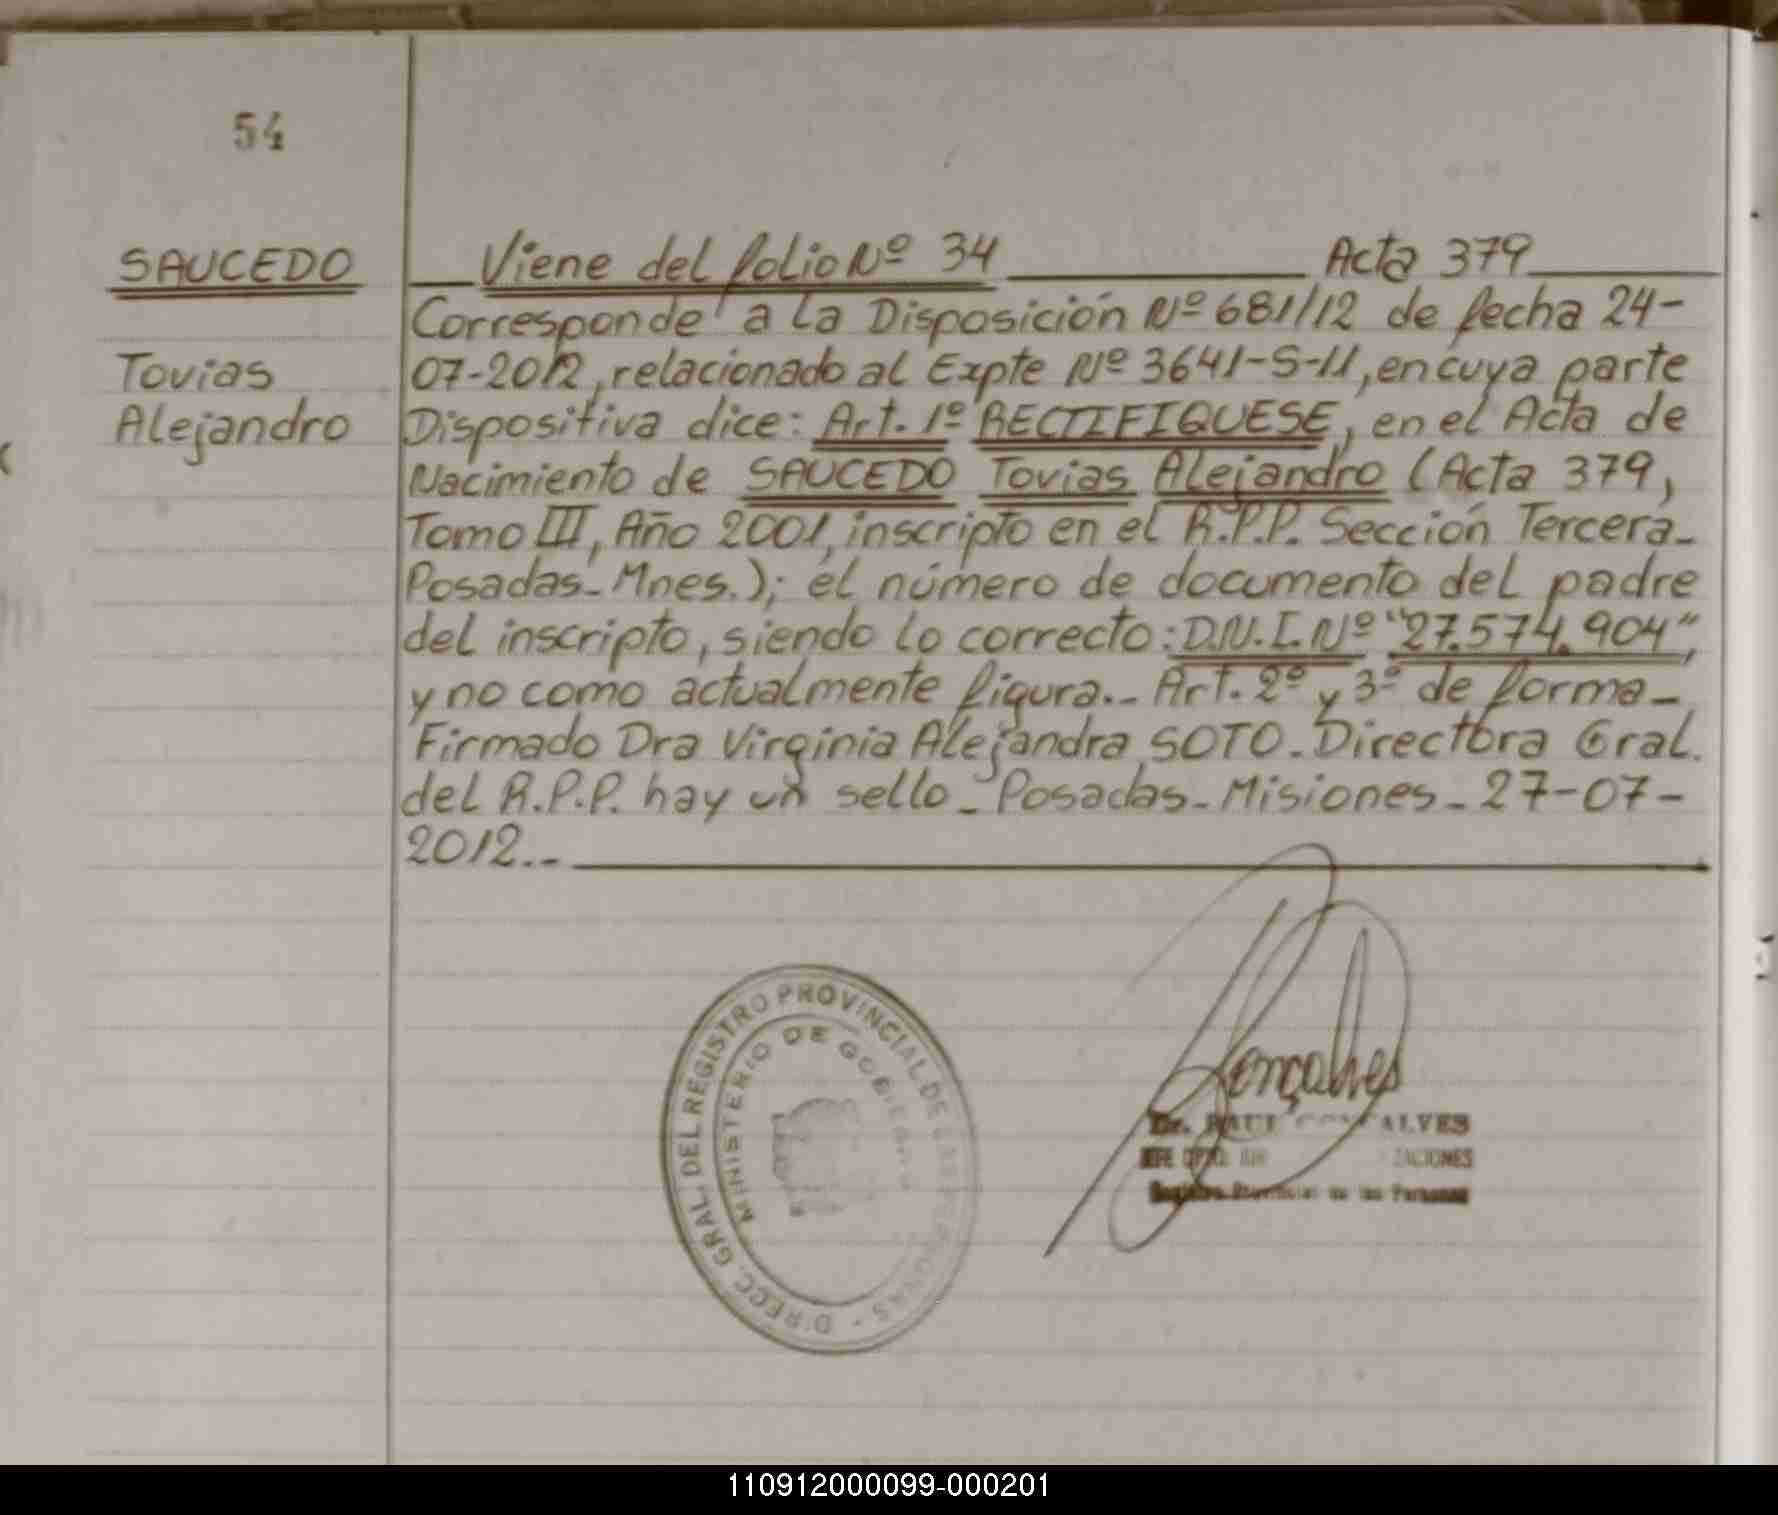 54
SAUCEDO
Tovias
Alejandro
Viene del folio Nº 34 Acta 379
Corresponde a la Disposición Nº 681/12 de fecha 24-
07-2012, relacionado al Expte Nº 3641-S-11, en cuya parte
Dispositiva dice: Art. 1º RECTIFIQUESE, en el Acta de
Nacimiento de SAUCEDO Tovias Alejandro (Acta 379,
Tomo III, Año 2001, inscripto en el R.P.P. Sección Tercera-
Posadas-Mnes.); el número de documento del padre
del inscripto, siendo lo correcto: D.N.I. Nº "27.574.904",
y no como actualmente figura.- Art. 2º y 3º de forma-
Firmado Dra Virginia Alejandra SOTO-Directora Gral.
del R.P.P. hay un sello-Posadas-Misiones-27-07-
2012.-
DIRECC. GRAL. DEL REGISTRO PROVINCIAL DE LAS PERSONAS -
MINISTERIO DE GOBIERNO
Gonçalves
Dr. RAUL GONCALVES
Registro Provincial de las Personas
110912000099-000201